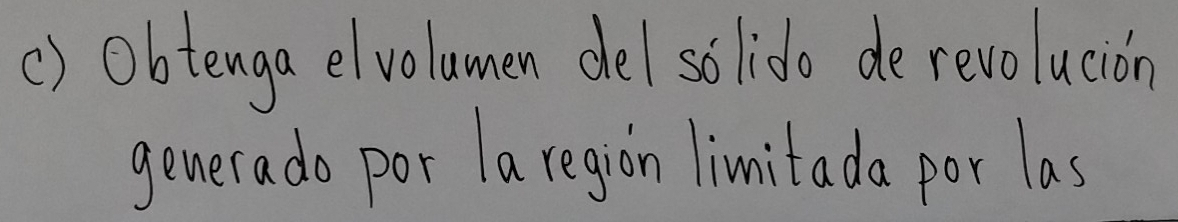 c) Obtenga el volumen del sólido de revolución
generado por la región limitada por las